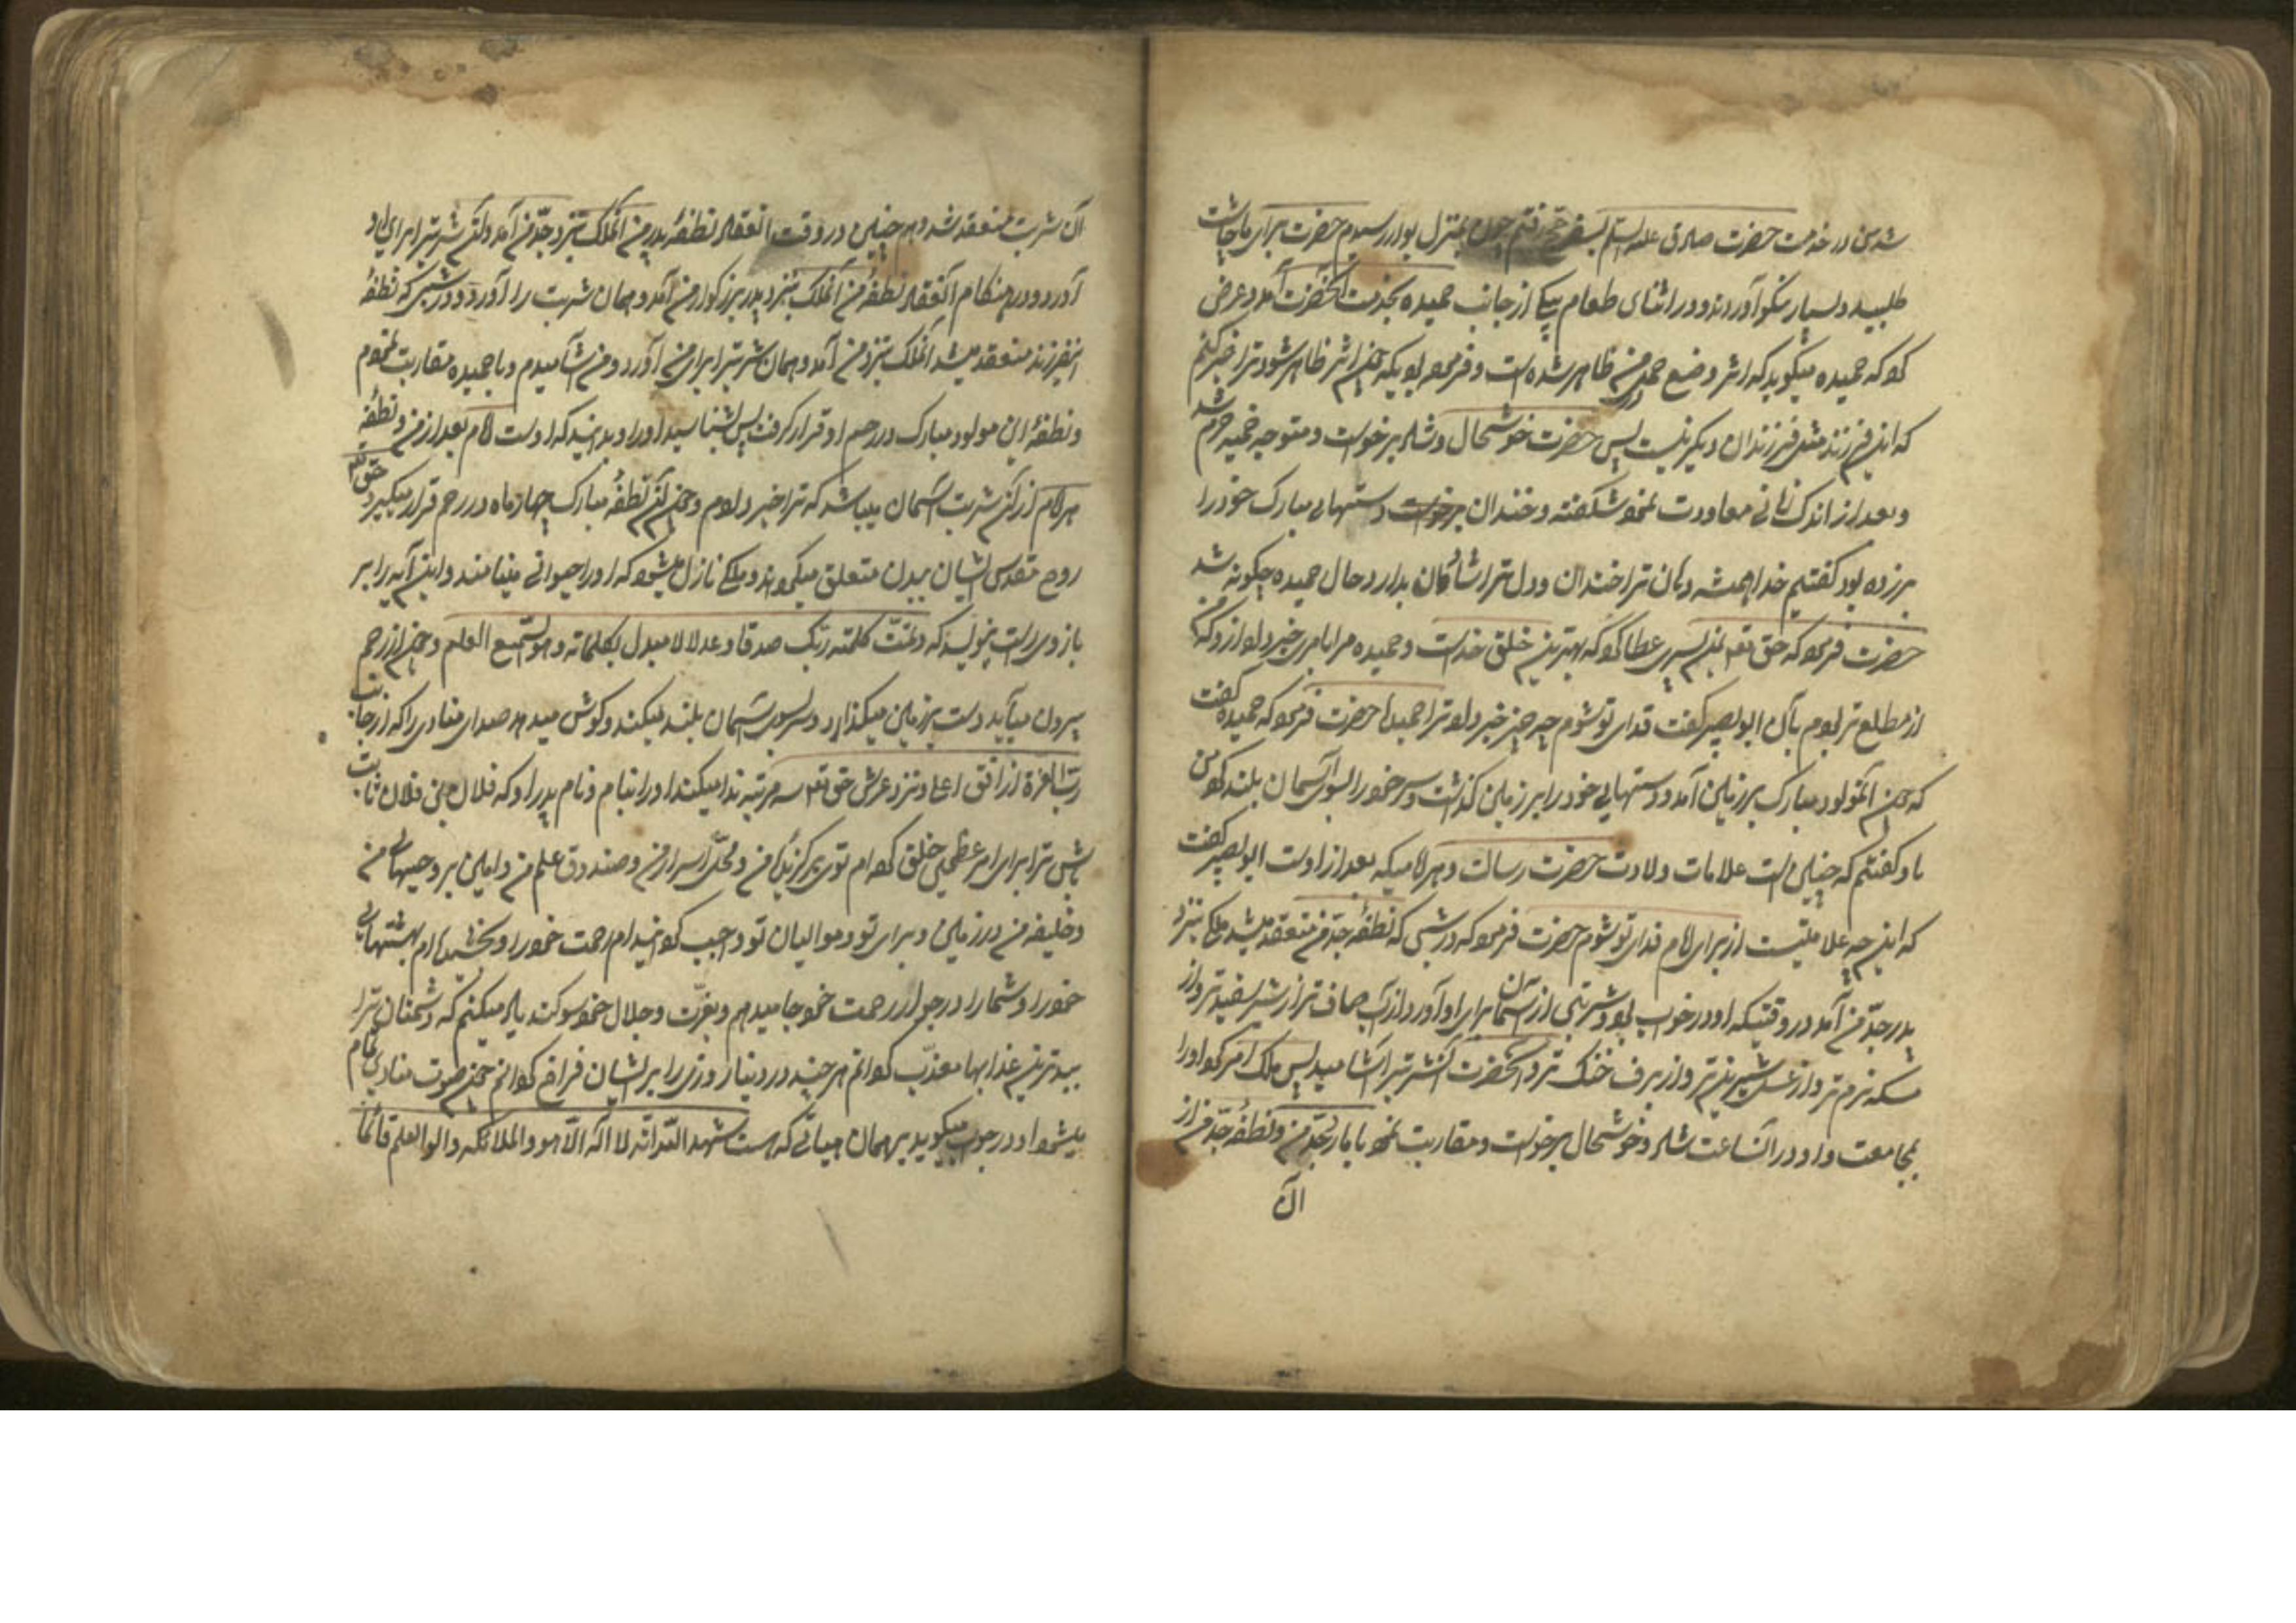 شد من در خدمت حضرت صادق علیه السلام بسفر حج رفتم چون بمنزل ابوا رسیدیم حضرت برای ما چاشت
طلبید و بسیار نیکو آوردند و در اثنای طعام پیکی از جانب حمیده بخدمت آنحضرت آمد و عرض
کرد که حمیده میگوید که اثر وضع حمل در من ظاهر شده است و فرموده بودید که چون اثر ظاهر شود ترا خبر کنم
که این فرزند مثل فرزندان دیگر نیست پس حضرت خوشحال و شاد برخواست و متوجه خیمه حرم شد
و بعد از اندک زمانی معاودت نمود شکفته و خندان و دستهای مبارک خود را
برزده بود گفتیم خدا همیشه دهان ترا خندان و دل ترا شادمان بدارد حال حمیده چگونه شد
حضرت فرمود که حق تعه بمن پسری عطا کرد که بهترین خلق خداست و حمیده مرا بامری خبر داد از او که من
از مطلع تر بودم بآن ابو بصیر گفت فدای تو شوم چه چیز خبر داد ترا حمیده حضرت فرمود که حمیده گفت
که چون آنمولود مبارک بر زمین آمد دستهای خود را بر زمین گذاشت و سر خود را بسوی آسمان بلند کرد من
باو گفتم که چنین است علامات ولادت حضرت رسالت و هر امامیکه بعد از اوست ابو بصیر گفت
که این چه علامتیست از برای امام فدای تو شوم حضرت فرمود که در شبی که نطفه جد من منعقد میشد ملکی بنزد
پدر جد من آمد در وقتیکه او در خواب بود و شربتی از آسمان برای او آورد از آب صاف تر از شیر سفیدتر و از
مسکه نرم تر و از عسل شیرین تر و از برف خنک تر و آنحضرت آنشربترا آشامید پس ملک امر کرد او را
بمجامعت و او در آنساعت شاد و خوشحال برخواست و مقاربت نمود با مادر جد من و نطفه جد من از
آن
آن شربت منعقد شد و همچنین در وقت انعقاد نطفه پدر من آنملک بنزد جد من آمد و آن شربترا برای او
آورد و در هنگام انعقاد نطفه من آنملک بنزد پدر بزرگوار من آمد و همان شربت را آورد و در شبی که نطفه
اینفرزند منعقد میشد آنملک بنزد من آمد و همان شربترا برای من آورد و من آشامیدم و با حمیده مقاربت نمودم
و نطفه این مولود مبارک در رحم او قرار گرفت پس بشناسید او را و بدانید که اوست امام بعد از من و نطفه
هر امام از آن شربت آسمان میباشد که ترا خبر دادم و چون آن نطفه مبارک چهار ماه در رحم قرار میگیرد حق تعه
روح مقدس ایشان ببدن متعلق میگرداند و ملکی نازل میشود که او را حیوانی مینامند و این آیه را بر
بازوی راست مینویسد که و تمت کلمة ربک صدقا و عدلا لا مبدل لکلماته و هو السمیع العلیم و چون از رحم
بیرون میآید دست بر زمین میگذارد و سر بسوی آسمان بلند میکند و گوش میدهد صدای منادی را که از جانب
رب العزة از افق اعلی و نزد عرش حق تعه سه مرتبه ندا میکند او را بنام و نام پدر او که فلان بن فلان ثابت
باش ترا برای امر عظیمی خلق کرده ام توی برگزیده من و محل اسرار من و صندوق علم من و امین بر وحیهای من
و خلیفه من در زمین و برای تو و موالیان تو واجب گردانیده ام رحمت خود را و بخشیده ام بهشتهای
خود را و شما را در جوار رحمت خود جا میدهم و بعزت و جلال خود سوگند یاد میکنم که دشمنان ترا
ببدترین عذابها معذب گردانم هر چند در دنیا روزی را بر ایشان فراخ گردانم چون صوت منادی تمام
میشود او در جواب میگوید بر همان هیأتی که هست شهد الله انه لا اله الا هو و الملائکه و اولو العلم قائما